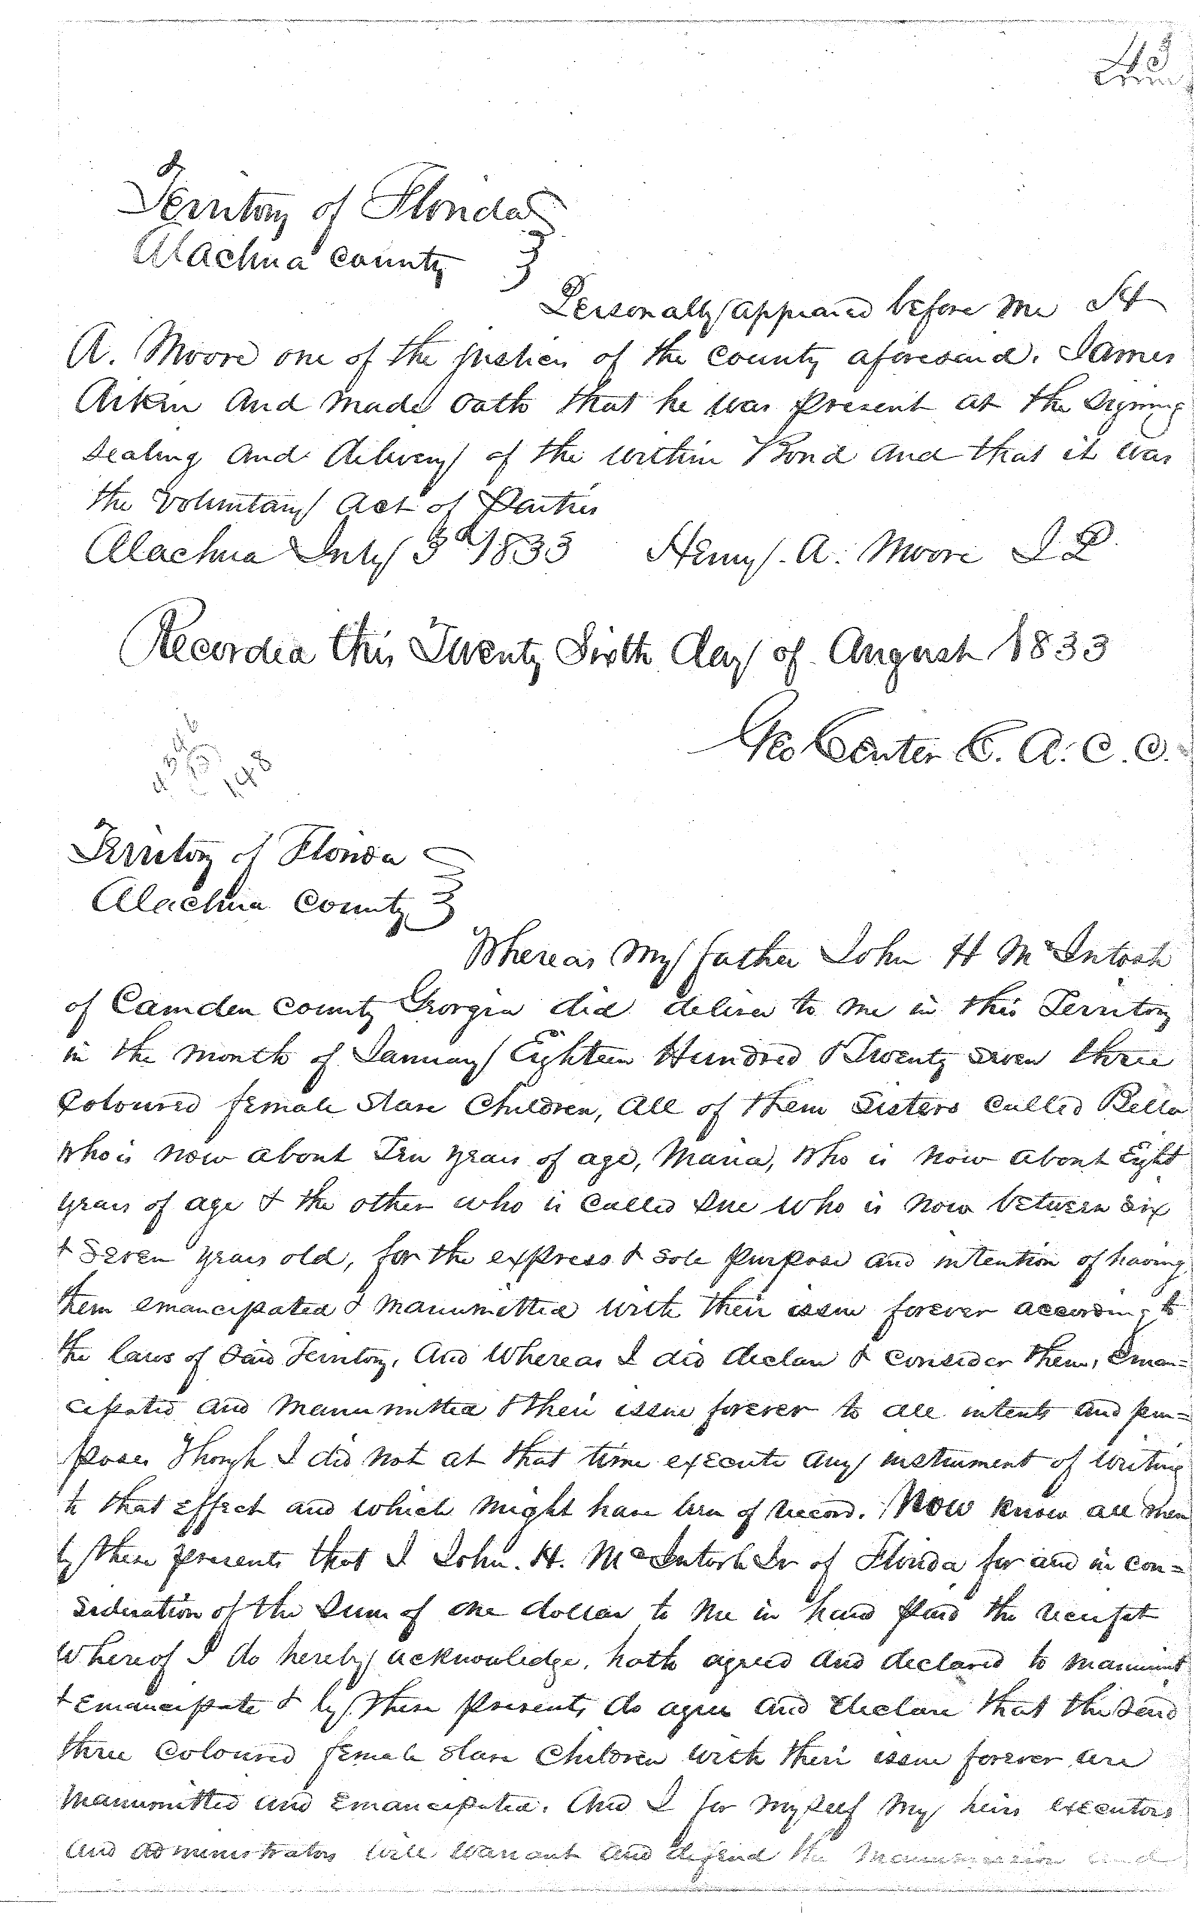 43
Territory of Florida
Alachua County
Personally appeared before me H
A. Moore one of the justices of the county aforesaid. James
Aikin and made oath that he was present at the signing
sealing and delivery of the within Bond and that it was
the voluntary act of Parties
Alachua July 3d 1833 Henry. A. Moore J P.
Recorded this Twenty Sixth day of August 1833
Geo Center C. A. C. C.
148
Territory of Florida
Alachua County
Whereas my father John H McIntosh
of Camden County Georgia did deliver to me in this Territory
in the month of January Eighteen Hundred & Twenty seven three
Coloured female slave Children, all of them Sisters called Bella
who is now about Ten years of age, Maria, who is now about Eight
years of age & the other who is called Sue who is now between six
& Seven years old, for the express & sole purpose and intention of having
them emancipated & manumitted with their issue forever according to
the laws of said Territory, And Whereas I did declare & consider them, eman=
cipated and manumitted & their issue forever to all intents and pur=
poses though I did not at that time execute any instrument of writing
to that effect and which might have been of record. Now know all men
by these presents that I John. H. McIntosh Jr of Florida for and in con=
sideration of the sum of one dollar to me in hand paid the receipt
whereof I do hereby acknowledge, hath agreed and declared to manumit
& emancipate & by these presents do agree and declare that the said
three coloured female slave Children with their issue forever are
manumitted and emancipated. And I for myself my heirs executors
and administrators will warrant and defend the manumission and